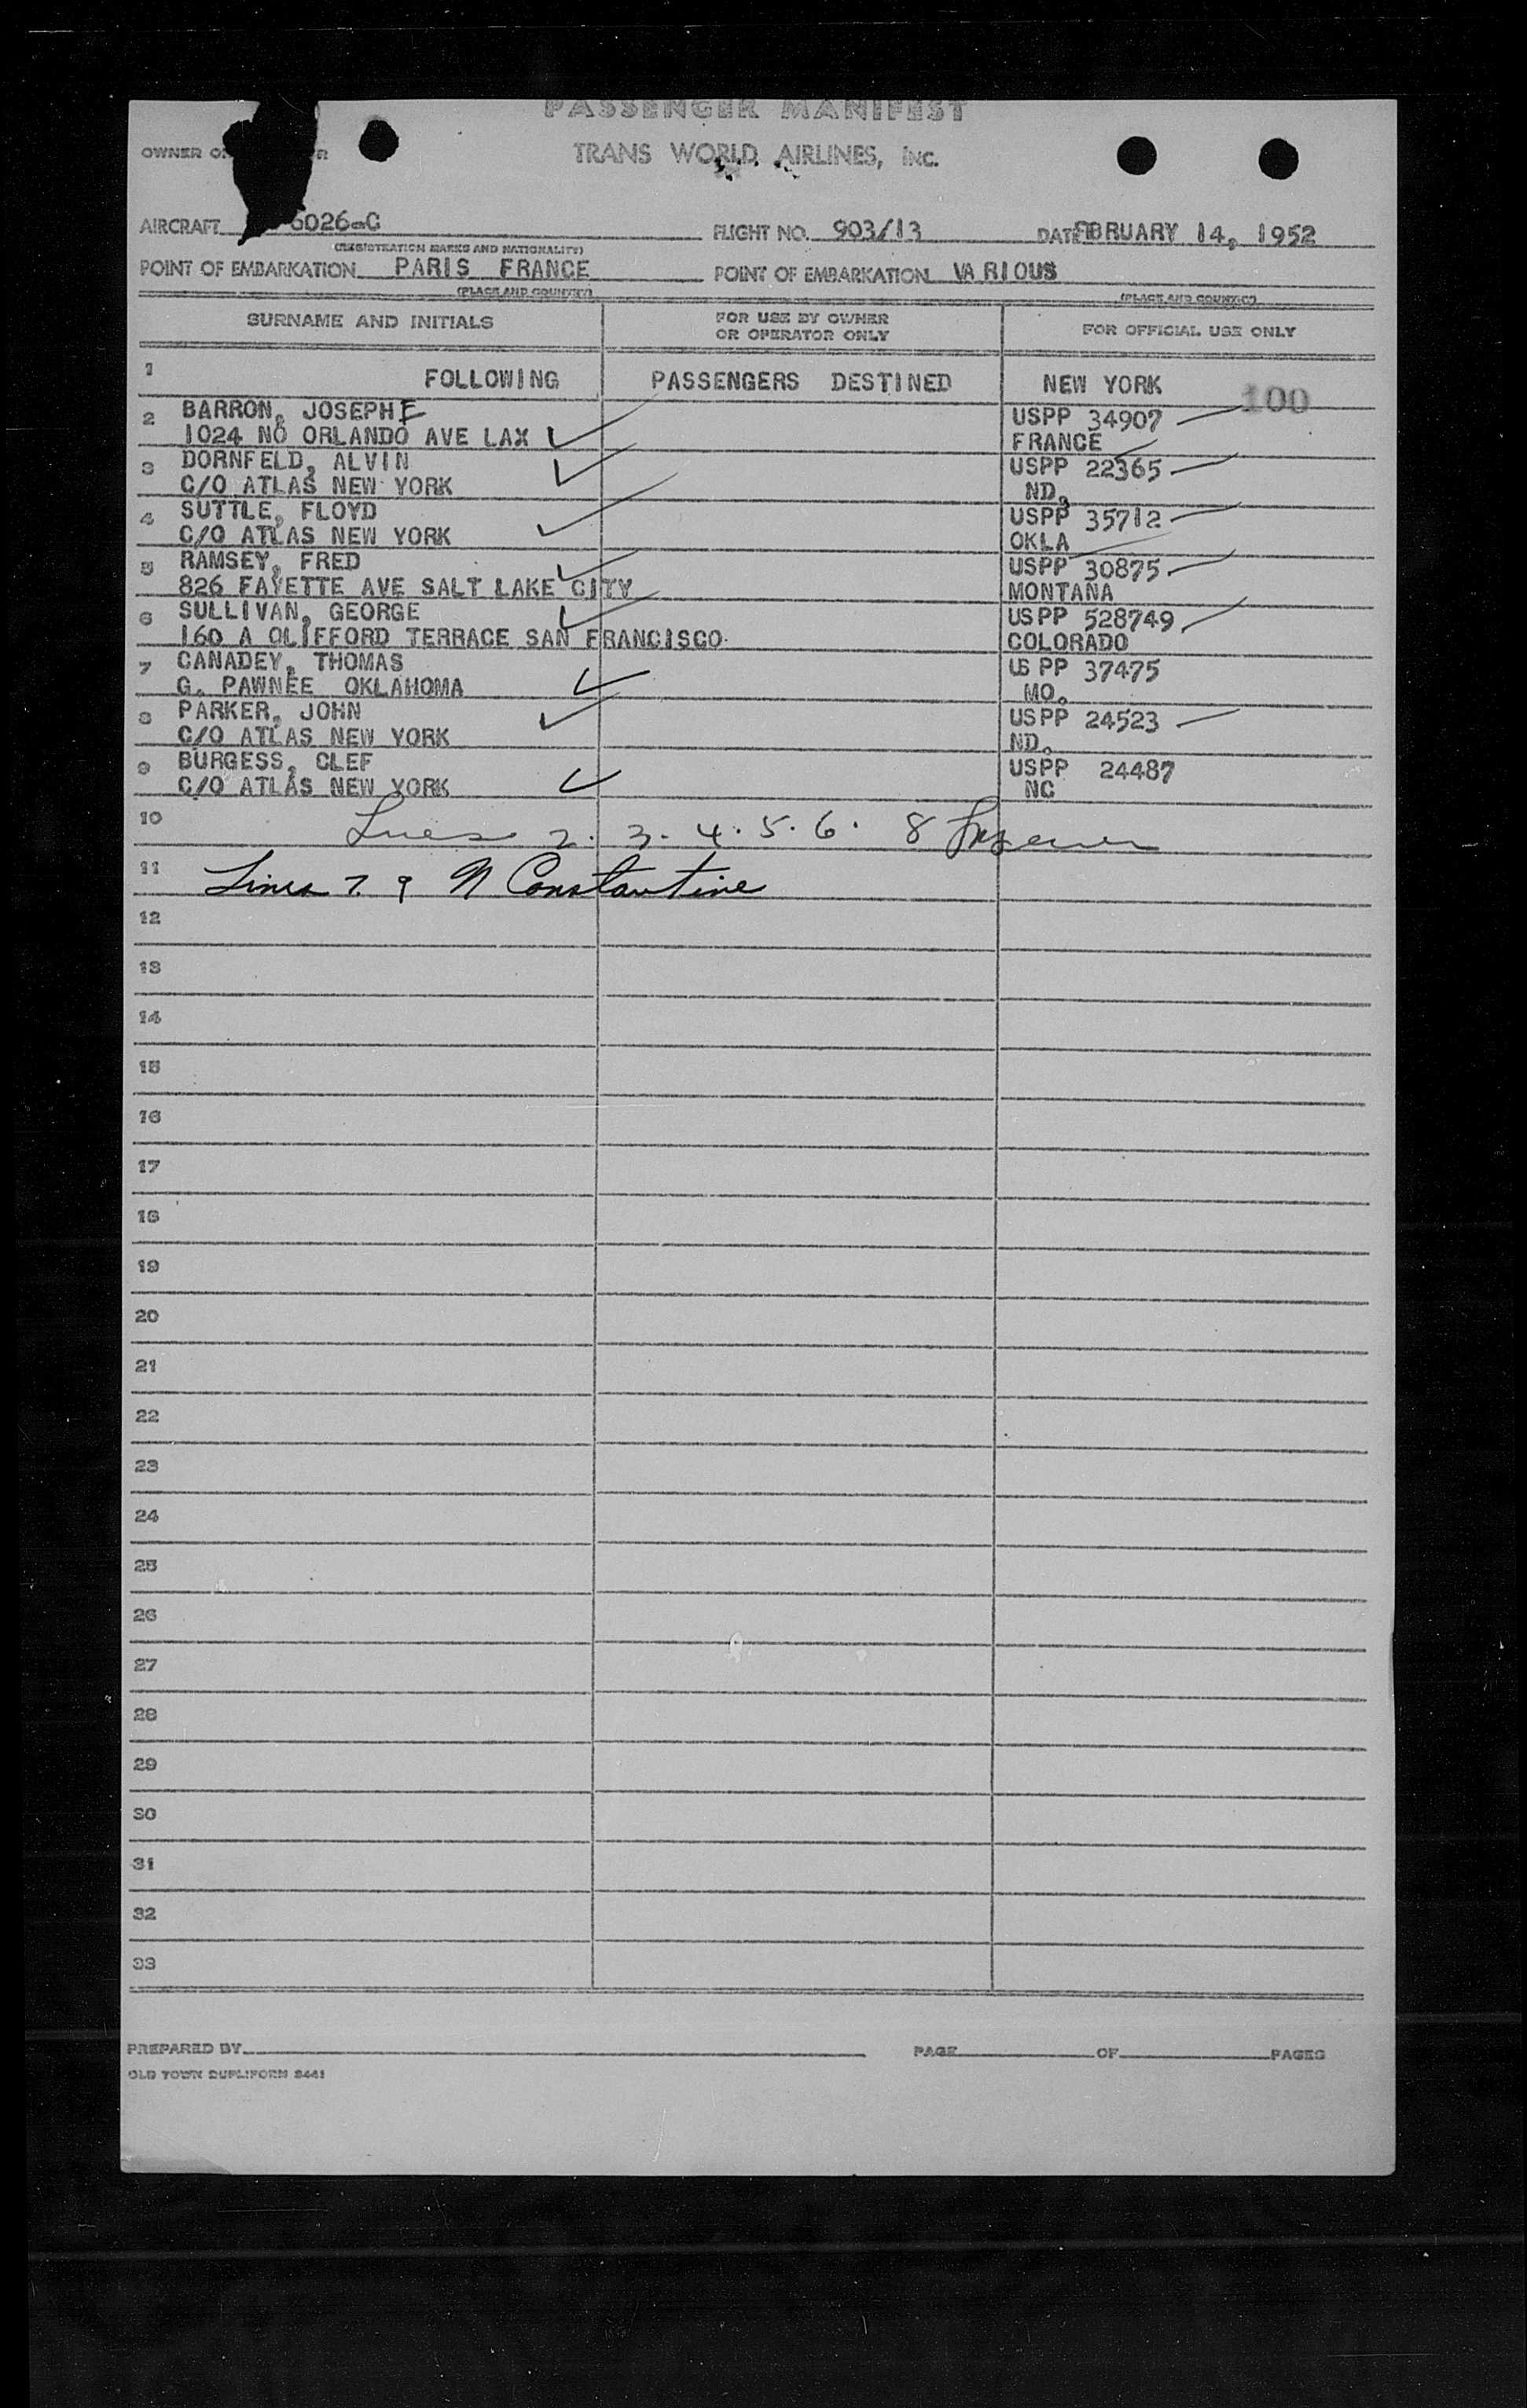 PASSENGER MANIFEST
OWNER O
TRANS WORLD AIRLINES, INC.
AIRCRAFT 6026-C FLIGHT NO. 903/13 DATE FEBRUARY 14, 1952
(REGISTRATION MARKS AND NATIONALITY)
POINT OF EMBARKATION PARIS FRANCE POINT OF EMBARKATION VARIOUS
(PLACE AND COUNTRY) (PLACE AND COUNTRY)
SURNAME AND INITIALS FOR USE BY OWNER OR OPERATOR ONLY FOR OFFICIAL USE ONLY
1 FOLLOWING PASSENGERS DESTINED NEW YORK 100
2 BARRON, JOSEPH E USPP 34907
1024 NO ORLANDO AVE LAX FRANCE
3 DORNFELD, ALVIN USPP 22365
C/O ATLAS NEW YORK ND.
4 SUTTLE, FLOYD USPP 35712
C/O ATLAS NEW YORK OKLA
5 RAMSEY, FRED USPP 30875
826 FAYETTE AVE SALT LAKE CITY MONTANA
6 SULLIVAN, GEORGE USPP 528749
160 A CLIFFORD TERRACE SAN FRANCISCO COLORADO
7 CANADEY, THOMAS USPP 37475
G. PAWNEE OKLAHOMA MO.
8 PARKER, JOHN USPP 24523
C/O ATLAS NEW YORK ND.
9 BURGESS, CLEF USPP 24487
C/O ATLAS NEW YORK NC
10 Lines 2. 3. 4. 5. 6. 8
11 Lines 7. 9 N Constantine
12
13
14
15
16
17
18
19
20
21
22
23
24
25
26
27
28
29
30
31
32
33
PREPARED BY PAGE OF PAGES
OLD TOWN DUPLIFORM 8441